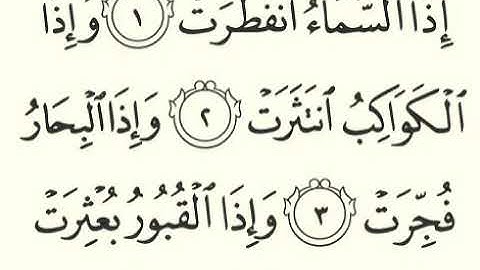 إِذَا ٱلسَّمَآءُ ٱنفَطَرَتْ ١ وَإِذَا
ٱلْكَوَاكِبُ ٱنتَثَرَتْ ٢ وَإِذَا ٱلْبِحَارُ
فُجِّرَتْ ٣ وَإِذَا ٱلْقُبُورُ بُعْثِرَتْ